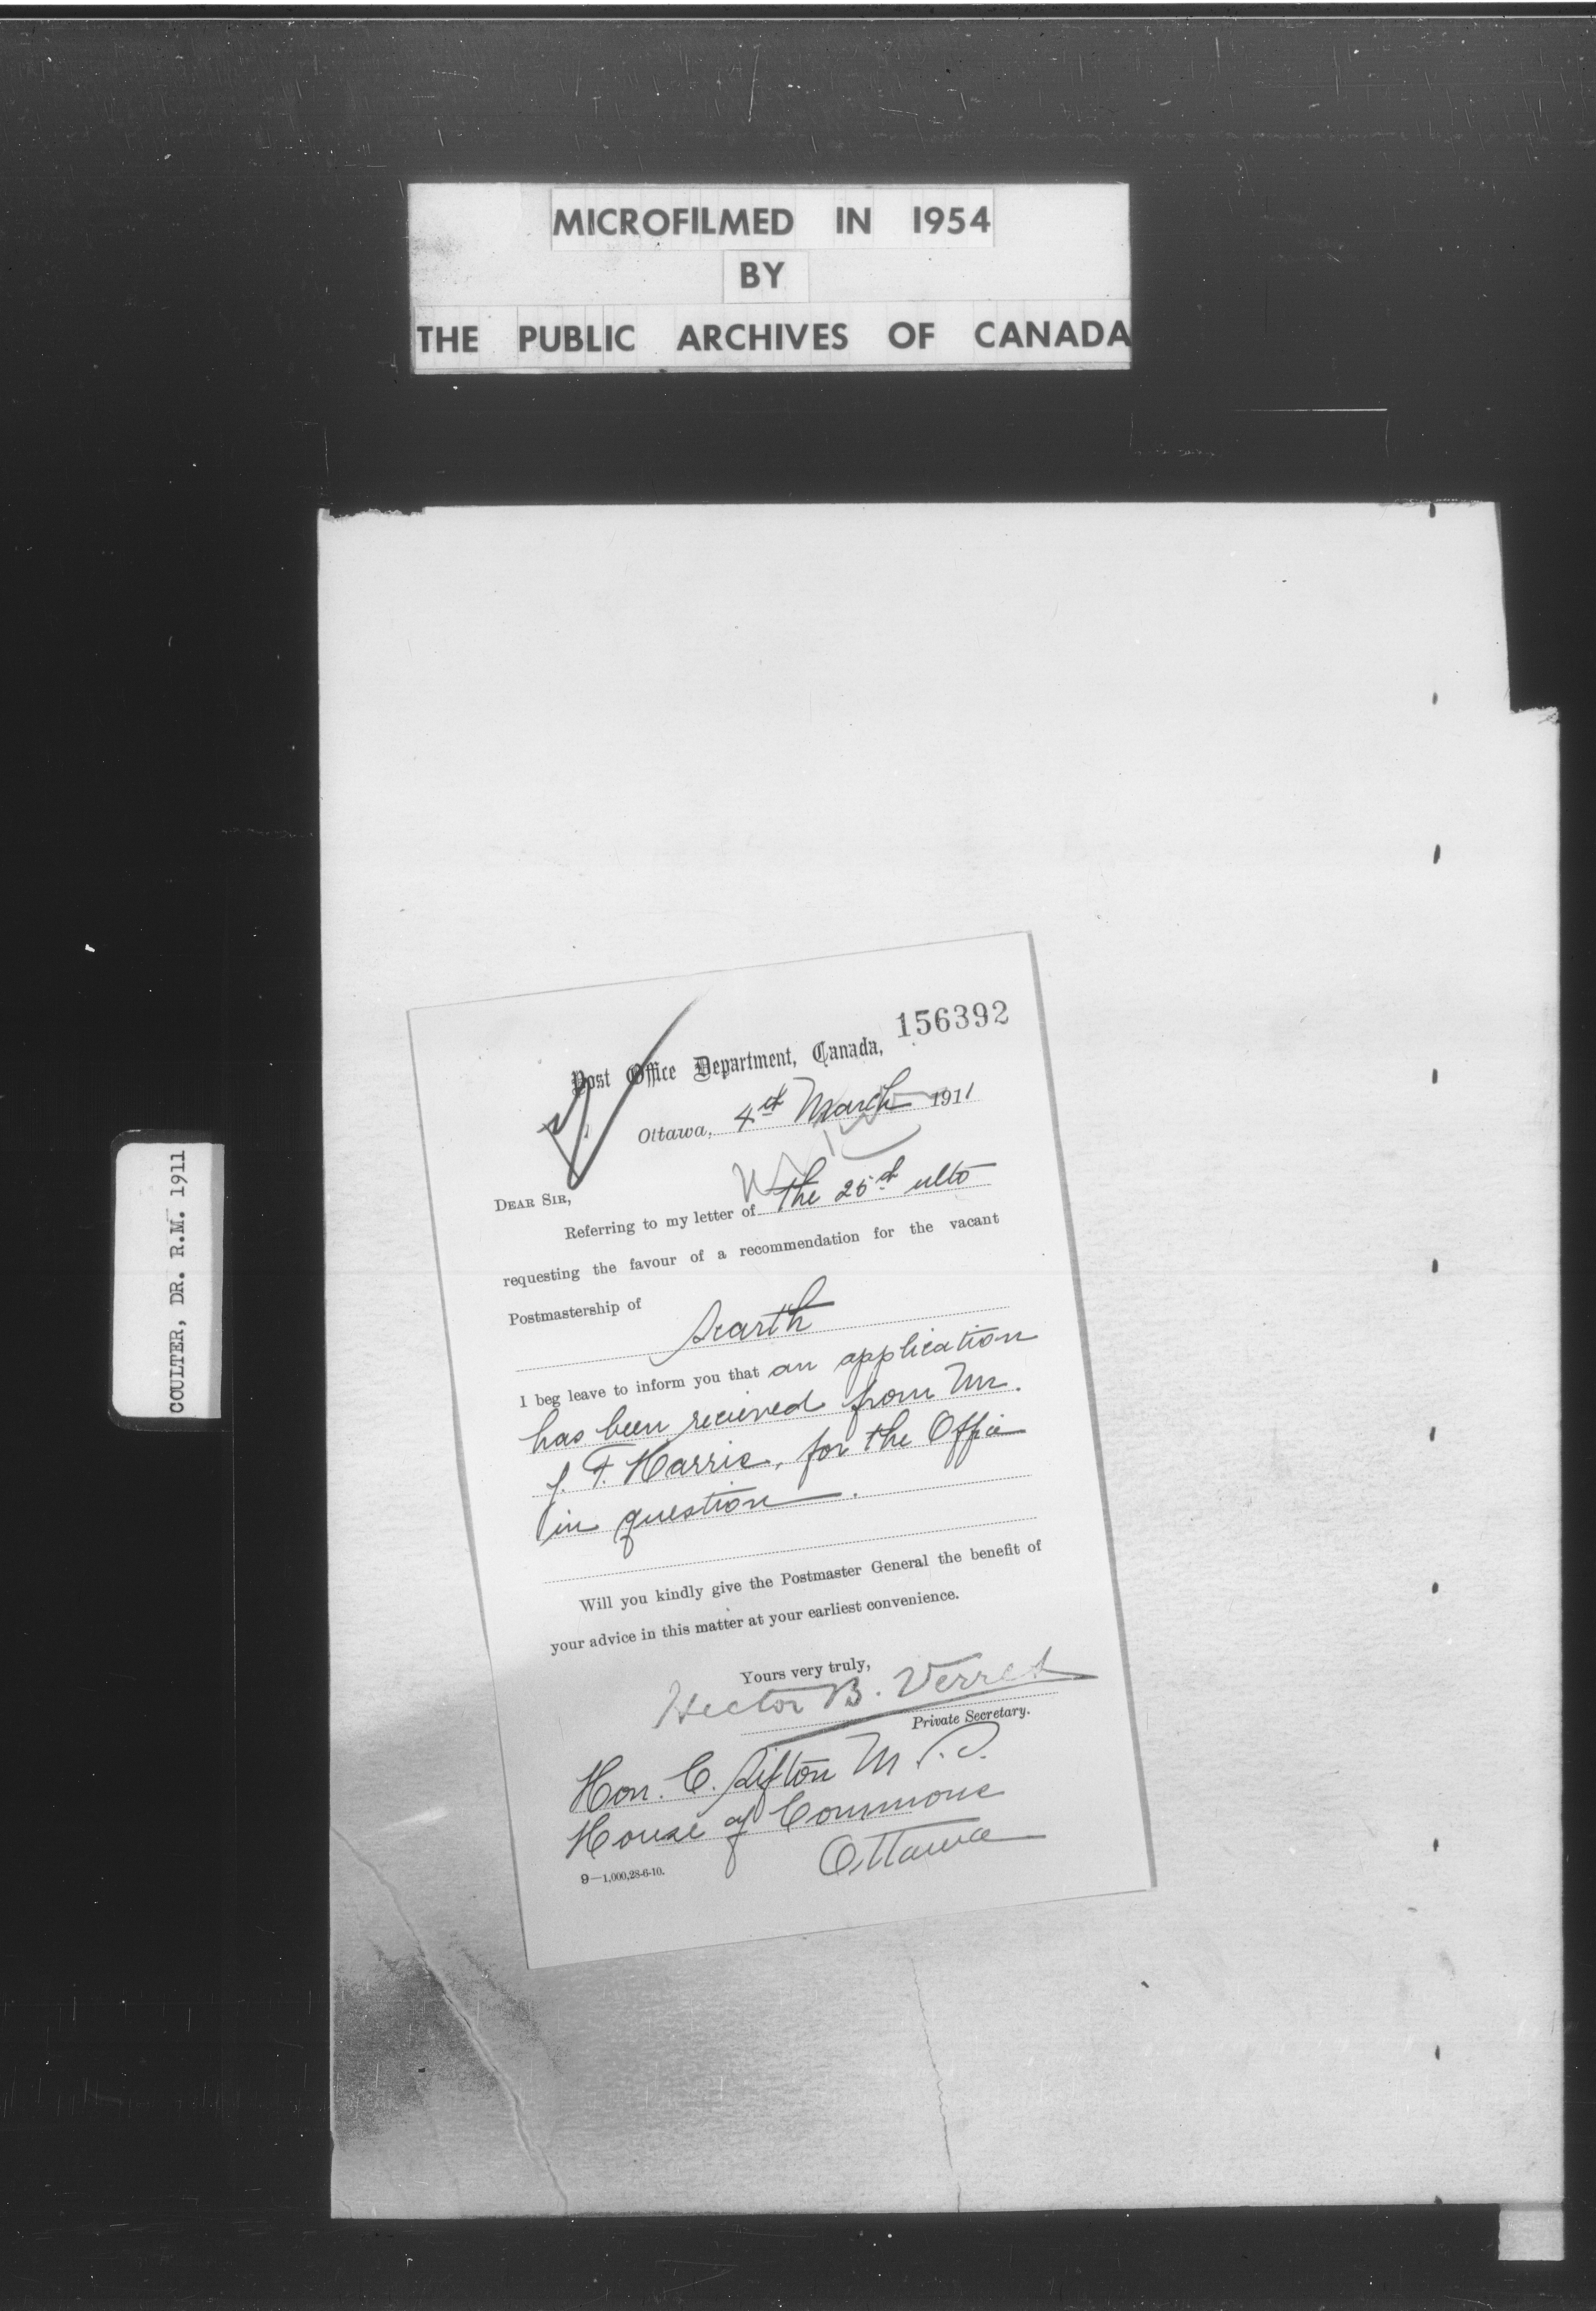 MICROFILMED IN 1954
BY
THE PUBLIC ARCHIVES OF CANADA
COULTER, DR. R.M. 1911
156392
Post Office Department, Canada,
Ottawa, 4th March 1911
DEAR SIR,
Referring to my letter of the 25th ulto
requesting the favour of a recommendation for the vacant
Postmastership of
Scarth
I beg leave to inform you that an application
has been received from Mr.
J. F. Harris, for the Office
in question.
Will you kindly give the Postmaster General the benefit of
your advice in this matter at your earliest convenience.
Yours very truly,
Hector B. Verret
Private Secretary.
Hon. C. Sifton M.P.
House of Commons
Ottawa
9—1,000,28-6-10.